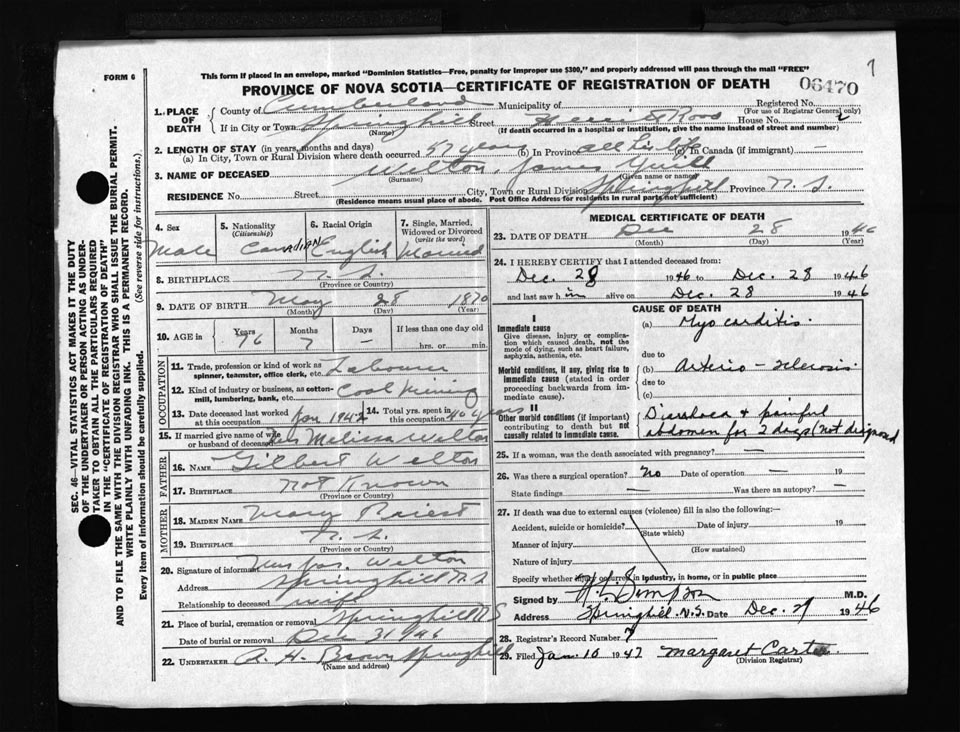 7
FORM 6
This form if placed in an envelope, marked "Dominion Statistics—Free, penalty for improper use $300," and properly addressed will pass through the mail "FREE"
PROVINCE OF NOVA SCOTIA—CERTIFICATE OF REGISTRATION OF DEATH
06470
1. PLACE OF DEATH
County of Cumberland Municipality of Registered No.
(For use of Registrar General only)
If in City or Town Springhill Street & House No. 2
(Name) (If death occurred in a hospital or institution, give the name instead of street and number)
2. LENGTH OF STAY (in years, months and days)
(a) In City, Town or Rural Division where death occurred 57 years (b) In Province all his life (c) In Canada (if immigrant) —
3. NAME OF DECEASED Welton, James
(Surname) (Given name or names)
RESIDENCE No. Street City, Town or Rural Division Springhill Province N. S.
(Residence means usual place of abode. Post Office Address for residents in rural parts not sufficient)
4. Sex Male
5. Nationality (Citizenship) Canadian
6. Racial Origin English
7. Single, Married, Widowed or Divorced (write the word) Married
8. BIRTHPLACE N. S.
(Province or Country)
9. DATE OF BIRTH May 28 1870
(Month) (Day) (Year)
10. AGE in Years 76 Months 7 Days — If less than one day old hrs. or min.
OCCUPATION
11. Trade, profession or kind of work as spinner, teamster, office clerk, etc. Labourer
12. Kind of industry or business, as cotton-mill, lumbering, bank, etc. Coal Mining
13. Date deceased last worked at this occupation Jan 1942
14. Total yrs. spent in this occupation 40 years
15. If married give name of wife or husband of deceased Melissa Welton
FATHER
16. NAME Gilbert Welton
17. BIRTHPLACE Not Known
(Province or Country)
MOTHER
18. MAIDEN NAME Mary
19. BIRTHPLACE N. S.
(Province or Country)
20. Signature of informant Mrs Jas. Welton
Address Springhill N.S
Relationship to deceased wife
21. Place of burial, cremation or removal Springhill N S
Date of burial or removal Dec 31 1946
22. UNDERTAKER A. H. Brown Springhill
(Name and address)
MEDICAL CERTIFICATE OF DEATH
23. DATE OF DEATH Dec 28 1946
(Month) (Day) (Year)
24. I HEREBY CERTIFY that I attended deceased from:
Dec. 28 1946 to Dec. 28 1946
and last saw him alive on Dec. 28 1946
CAUSE OF DEATH
I
Immediate cause
Give disease, injury or complication which caused death, not the mode of dying, such as heart failure, asphyxia, asthenia, etc.
(a) Myocarditis.
due to
Morbid conditions, if any, giving rise to immediate cause (stated in order proceeding backwards from immediate cause).
(b) Arterio-sclerosis
due to
(c)
II
Other morbid conditions (if important) contributing to death but not causally related to immediate cause.
Diarrhoea & painful
abdomen for 2 days (not diagnosed
25. If a woman, was the death associated with pregnancy? —
26. Was there a surgical operation? No Date of operation — 19
State findings — Was there an autopsy? —
27. If death was due to external causes (violence) fill in also the following:—
Accident, suicide or homicide? Date of injury 19
(State which)
Manner of injury
(How sustained)
Nature of injury
Specify whether injury occurred in industry, in home, or in public place
Signed by Simpson M.D.
Address Springhill. N.S. Date Dec. 1946
28. Registrar's Record Number 7
29. Filed Jan. 10 1947 Margaret Carter
(Division Registrar)
SEC. 46—VITAL STATISTICS ACT MAKES IT THE DUTY
OF THE UNDERTAKER OR PERSON ACTING AS UNDERTAKER TO OBTAIN ALL THE PARTICULARS REQUIRED
IN THE "CERTIFICATE OF REGISTRATION OF DEATH"
AND TO FILE THE SAME WITH THE DIVISION REGISTRAR WHO SHALL ISSUE THE BURIAL PERMIT.
WRITE PLAINLY WITH UNFADING INK. THIS IS A PERMANENT RECORD.
Every item of information should be carefully supplied. (See reverse side for instructions.)